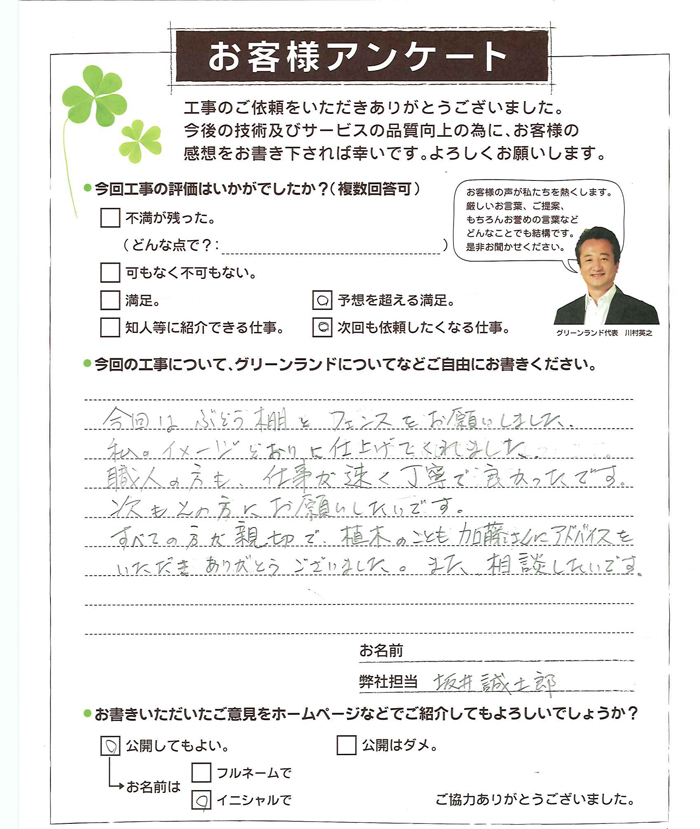 お客様アンケート
工事のご依頼をいただきありがとうございました。
今後の技術及びサービスの品質向上の為に、お客様の
感想をお書き下されば幸いです。よろしくお願いします。
●今回工事の評価はいかがでしたか？（複数回答可）
お客様の声が私たちを熱くします。
厳しいお言葉、ご提案、
もちろんお誉めの言葉など
どんなことでも結構です。
是非お聞かせください。
グリーンランド代表 川村英之
不満が残った。
（どんな点で？：　）
可もなく不可もない。
満足。 予想を超える満足。
知人等に紹介できる仕事。 次回も依頼したくなる仕事。
●今回の工事について、グリーンランドについてなどご自由にお書きください。
今回は ぶどう棚と フェンスを お願いしました。
私のイメージどおりに仕上げてくれました。
職人の方も、仕事が速く丁寧で良かったです。
次もその方にお願いしたいです。
すべての方が親切で、植木のことも加藤さんにアドバイスを
いただき ありがとうございました。また、相談したいです。
お名前
弊社担当 坂井誠士郎
●お書きいただいたご意見をホームページなどでご紹介してもよろしいでしょうか？
公開してもよい。 公開はダメ。
お名前は フルネームで
イニシャルで
ご協力ありがとうございました。